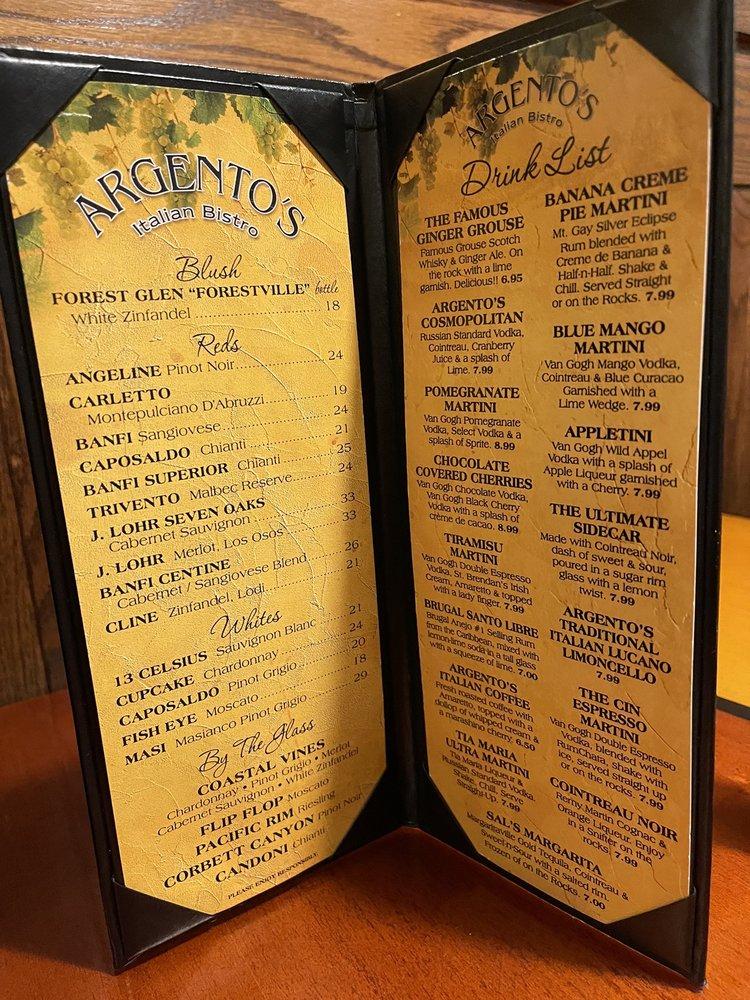 ARGENTO'S
Italian Bistro
Blush
FOREST GLEN "FORESTVILLE" bottle
White Zinfandel 18
Reds
ANGELINE Pinot Noir 24
CARLETTO
Montepulciano D'Abruzzi 19
BANFI Sangiovese 24
CAPOSALDO Chianti 21
BANFI SUPERIOR Chianti 25
TRIVENTO Malbec Reserve 24
J. LOHR SEVEN OAKS
Cabernet Sauvignon 33
J. LOHR Merlot, Los Osos 33
BANFI CENTINE
Cabernet / Sangiovese Blend 26
CLINE Zinfandel, Lodi 21
Whites
13 CELSIUS Sauvignon Blanc 21
CUPCAKE Chardonnay 24
CAPOSALDO Pinot Grigio 20
FISH EYE Moscato 18
MASI Masianco Pinot Grigio 29
By The Glass
COASTAL VINES
Chardonnay • Pinot Grigio • Merlot
Cabernet Sauvignon • White Zinfandel
FLIP FLOP Moscato
PACIFIC RIM Riesling
CORBETT CANYON Pinot Noir
CANDONI Chianti
PLEASE ENJOY RESPONSIBLY.
ARGENTO'S
Italian Bistro
Drink List
THE FAMOUS
GINGER GROUSE
Famous Grouse Scotch
Whisky & Ginger Ale. On
the rock with a lime
garnish. Delicious!! 6.95
ARGENTO'S
COSMOPOLITAN
Russian Standard Vodka,
Cointreau, Cranberry
Juice & a splash of
Lime. 7.99
POMEGRANATE
MARTINI
Van Gogh Pomegranate
Vodka, Select Vodka & a
splash of Sprite. 8.99
CHOCOLATE
COVERED CHERRIES
Van Gogh Chocolate Vodka,
Van Gogh Black Cherry
Vodka with a splash of
crème de cacao. 8.99
TIRAMISU
MARTINI
Van Gogh Double Espresso
Vodka, St. Brendan's Irish
Cream, Amaretto & topped
with a lady finger. 7.99
BRUGAL SANTO LIBRE
Brugal Anejo #1 Selling Rum
from the Caribbean, mixed with
lemon-lime soda in a tall glass
with a squeeze of lime. 7.00
ARGENTO'S
ITALIAN COFFEE
Fresh roasted coffee with
Amaretto, topped with a
dollop of whipped cream &
a marashino cherry. 6.50
TIA MARIA
ULTRA MARTINI
Tia Maria Liqueur &
Russian Standard Vodka.
Shake, Chill. Serve
Straight-Up. 7.99
BANANA CREME
PIE MARTINI
Mt. Gay Silver Eclipse
Rum blended with
Creme de Banana &
Half-n-Half. Shake &
Chill. Served Straight
or on the Rocks. 7.99
BLUE MANGO
MARTINI
Van Gogh Mango Vodka,
Cointreau & Blue Curacao
Garnished with a
Lime Wedge. 7.99
APPLETINI
Van Gogh Wild Appel
Vodka with a splash of
Apple Liqueur garnished
with a Cherry. 7.99
THE ULTIMATE
SIDECAR
Made with Cointreau Noir,
dash of sweet & sour,
poured in a sugar rim
glass with a lemon
twist. 7.99
ARGENTO'S
TRADITIONAL
ITALIAN LUCANO
LIMONCELLO
7.99
THE CIN
ESPRESSO
MARTINI
Van Gogh Double Espresso
Vodka, blended with
RumChata, shake with
ice, served straight up
or on the rocks. 7.99
COINTREAU NOIR
Remy Martin Cognac &
Orange Liqueur. Enjoy
in a snifter on the
rocks. 7.99
SAL'S MARGARITA
Margaritaville Gold Tequila, Cointreau &
Sweet-n-Sour with a salted rim.
Frozen of on the Rocks. 7.00